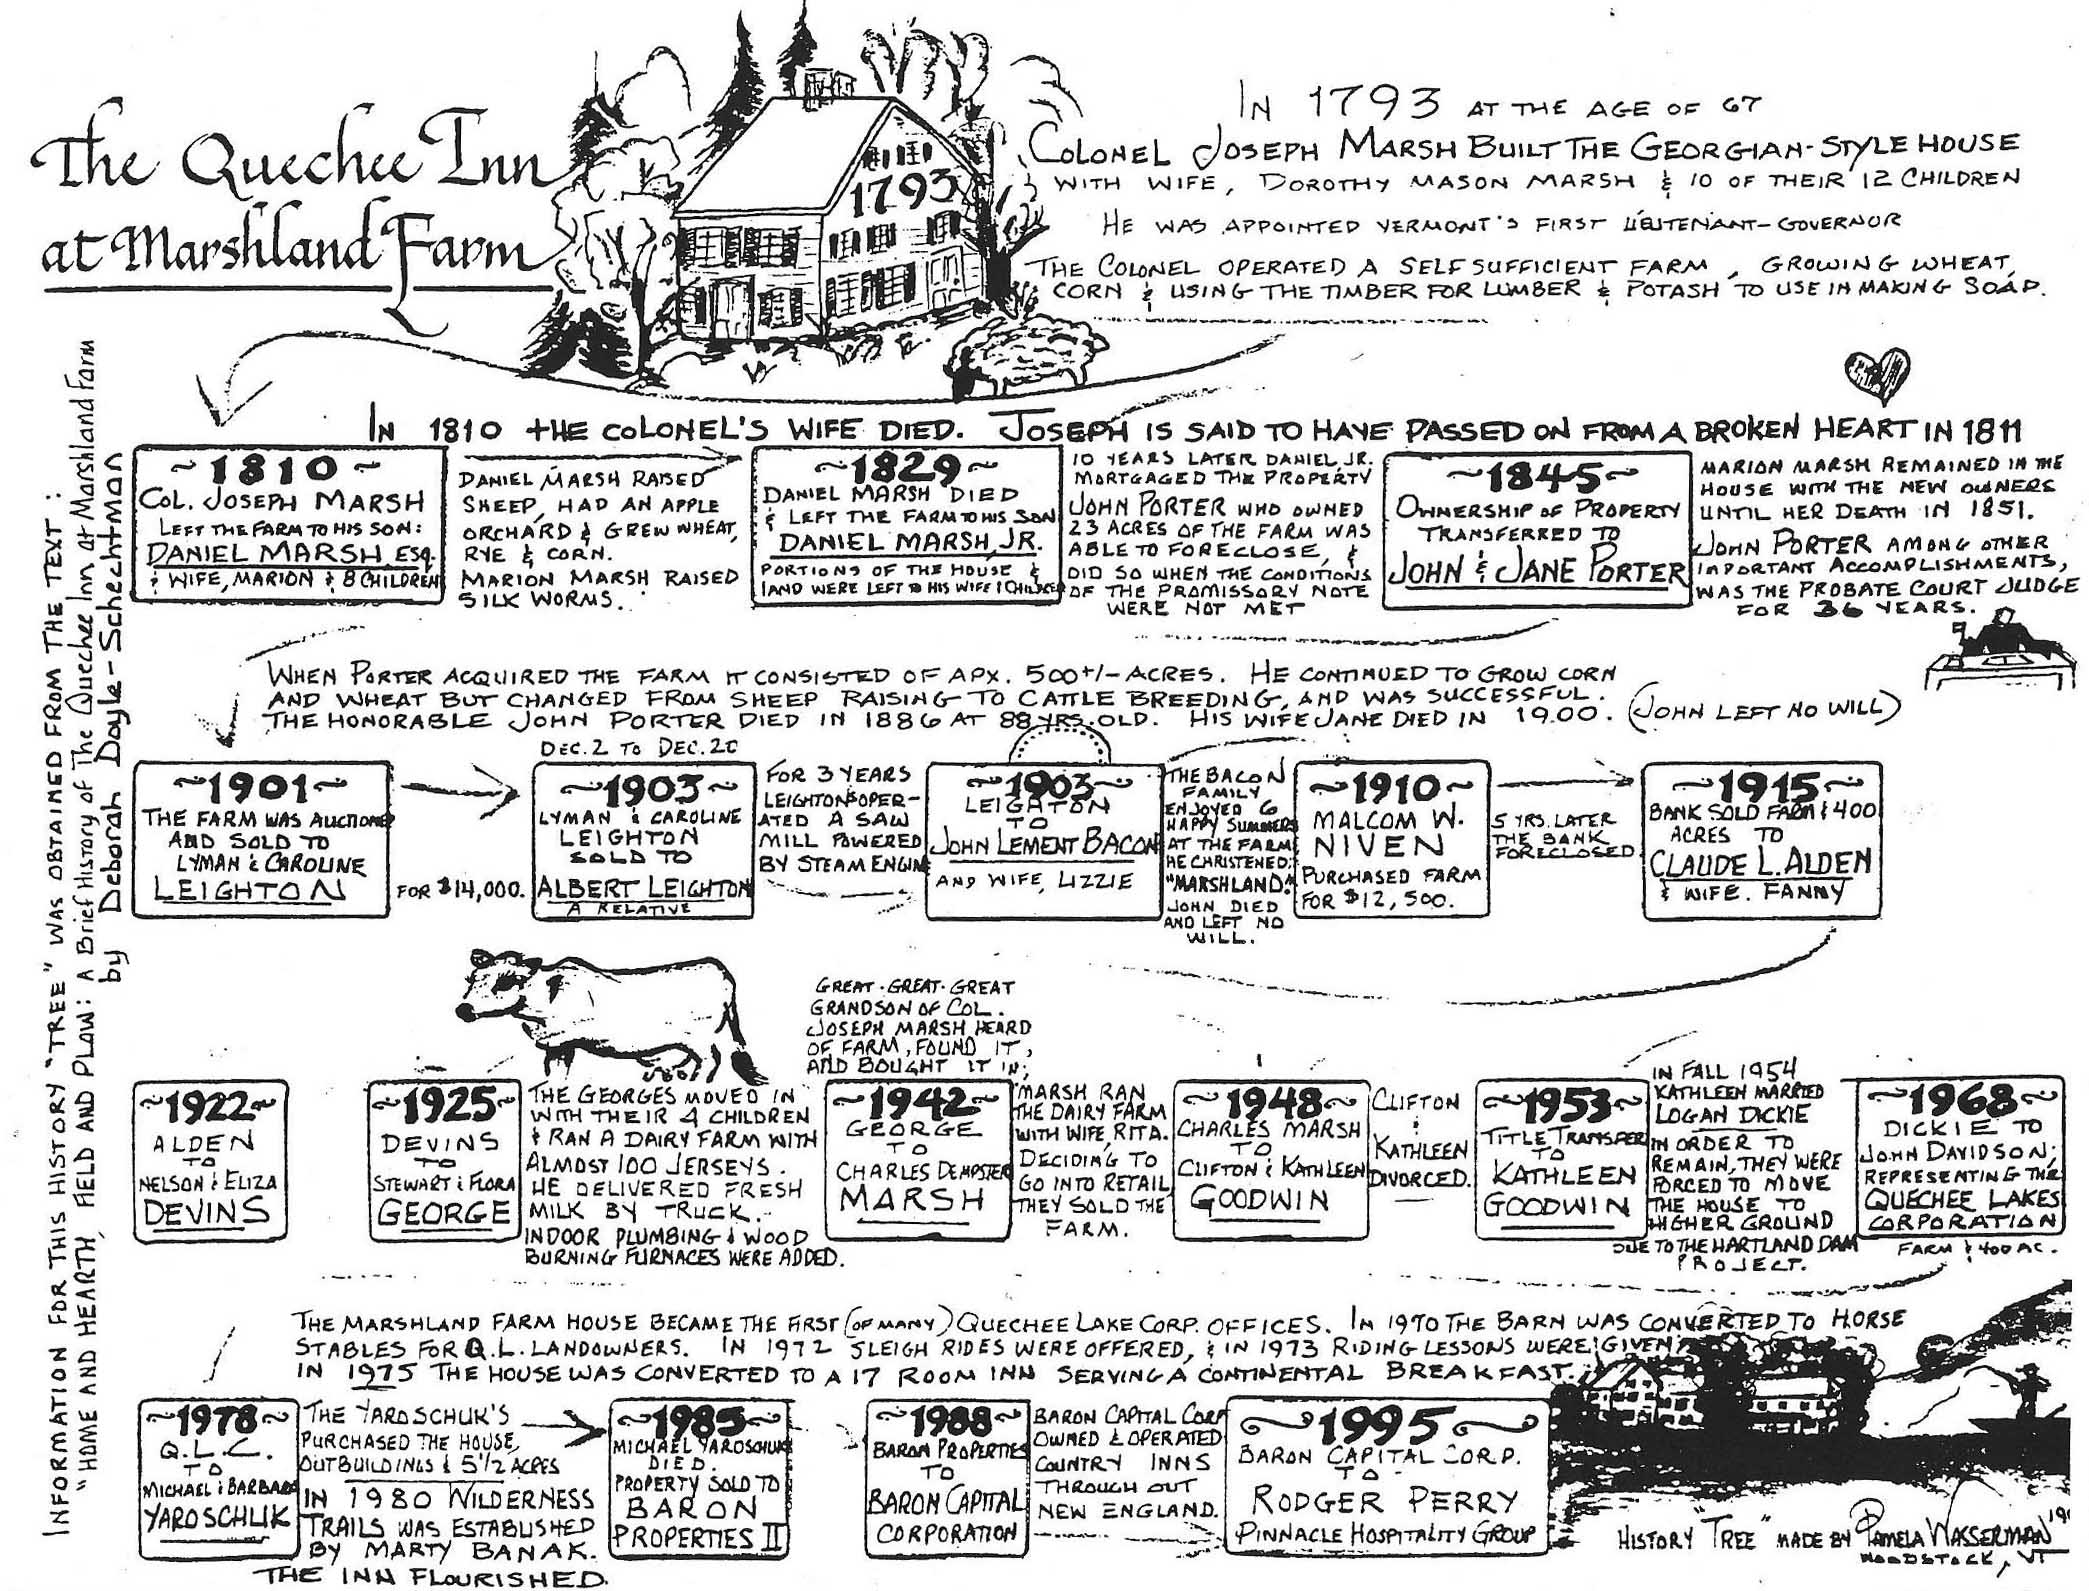 The Quechee Inn
at Marshland Farm
1793
IN 1793 AT THE AGE OF 67
COLONEL JOSEPH MARSH BUILT THE GEORGIAN-STYLE HOUSE
WITH WIFE, DOROTHY MASON MARSH & 10 OF THEIR 12 CHILDREN
HE WAS APPOINTED VERMONT'S FIRST LIEUTENANT-GOVERNOR
THE COLONEL OPERATED A SELF SUFFICIENT FARM, GROWING WHEAT,
CORN & USING THE TIMBER FOR LUMBER & POTASH TO USE IN MAKING SOAP.
IN 1810 THE COLONEL'S WIFE DIED. JOSEPH IS SAID TO HAVE PASSED ON FROM A BROKEN HEART IN 1811
~1810~
COL. JOSEPH MARSH
LEFT THE FARM TO HIS SON:
DANIEL MARSH, ESQ.
& WIFE, MARION & 8 CHILDREN
DANIEL MARSH RAISED
SHEEP, HAD AN APPLE
ORCHARD & GREW WHEAT,
RYE & CORN.
MARION MARSH RAISED
SILK WORMS.
~1829~
DANIEL MARSH DIED
& LEFT THE FARM TO HIS SON
DANIEL MARSH, JR.
PORTIONS OF THE HOUSE &
LAND WERE LEFT TO HIS WIFE & CHILDREN
10 YEARS LATER DANIEL JR.
MORTGAGED THE PROPERTY
JOHN PORTER WHO OWNED
23 ACRES OF THE FARM WAS
ABLE TO FORECLOSE, &
DID SO WHEN THE CONDITIONS
OF THE PROMISSORY NOTE
WERE NOT MET
~1845~
OWNERSHIP OF PROPERTY
TRANSFERRED TO
JOHN & JANE PORTER
MARION MARSH REMAINED IN THE
HOUSE WITH THE NEW OWNERS
UNTIL HER DEATH IN 1851.
JOHN PORTER AMONG OTHER
IMPORTANT ACCOMPLISHMENTS,
WAS THE PROBATE COURT JUDGE
FOR 36 YEARS.
WHEN PORTER ACQUIRED THE FARM IT CONSISTED OF APX. 500+/- ACRES. HE CONTINUED TO GROW CORN
AND WHEAT BUT CHANGED FROM SHEEP RAISING TO CATTLE BREEDING, AND WAS SUCCESSFUL.
THE HONORABLE JOHN PORTER DIED IN 1886 AT 88 YRS. OLD. HIS WIFE JANE DIED IN 1900. (JOHN LEFT NO WILL)
~1901~
THE FARM WAS AUCTIONED
AND SOLD TO
LYMAN & CAROLINE
LEIGHTON
FOR $14,000.
DEC. 2 TO DEC. 20
~1903~
LYMAN & CAROLINE
LEIGHTON
SOLD TO
ALBERT LEIGHTON
A RELATIVE
FOR 3 YEARS
LEIGHTONS OPER-
ATED A SAW
MILL POWERED
BY STEAM ENGINE
~1903~
LEIGHTON
TO
JOHN LEMENT BACON
AND WIFE, LIZZIE
THE BACON
FAMILY
ENJOYED 6
HAPPY SUMMERS
AT THE FARM
HE CHRISTENED:
"MARSHLAND."
JOHN DIED
AND LEFT NO
WILL.
~1910~
MALCOM W.
NIVEN
PURCHASED FARM
FOR $12,500.
5 YRS. LATER
THE BANK
FORECLOSED
~1915~
BANK SOLD FARM & 400
ACRES TO
CLAUDE L. ALDEN
& WIFE. FANNY
~1922~
ALDEN
TO
NELSON & ELIZA
DEVINS
~1925~
DEVINS
TO
STEWART & FLORA
GEORGE
THE GEORGES MOVED IN
WITH THEIR 4 CHILDREN
& RAN A DAIRY FARM WITH
ALMOST 100 JERSEYS.
HE DELIVERED FRESH
MILK BY TRUCK.
INDOOR PLUMBING & WOOD
BURNING FURNACES WERE ADDED.
GREAT-GREAT-GREAT
GRANDSON OF COL.
JOSEPH MARSH HEARD
OF FARM, FOUND IT,
AND BOUGHT IT IN;
~1942~
GEORGE
TO
CHARLES DEMPSTER
MARSH
MARSH RAN
THE DAIRY FARM
WITH WIFE, RITA.
DECIDING TO
GO INTO RETAIL
THEY SOLD THE
FARM.
~1948~
CHARLES MARSH
TO
CLIFTON & KATHLEEN
GOODWIN
CLIFTON
&
KATHLEEN
DIVORCED.
~1953~
TITLE TRANSFER
TO
KATHLEEN
GOODWIN
IN FALL 1954
KATHLEEN MARRIED
LOGAN DICKIE
IN ORDER TO
REMAIN, THEY WERE
FORCED TO MOVE
THE HOUSE TO
HIGHER GROUND
DUE TO THE HARTLAND DAM
PROJECT.
~1968~
DICKIE TO
JOHN DAVIDSON,
REPRESENTING THE
QUECHEE LAKES
CORPORATION
FARM & 400 AC.
THE MARSHLAND FARM HOUSE BECAME THE FIRST (OF MANY) QUECHEE LAKE CORP. OFFICES. IN 1970 THE BARN WAS CONVERTED TO HORSE
STABLES FOR Q.L. LANDOWNERS. IN 1972 SLEIGH RIDES WERE OFFERED, & IN 1973 RIDING LESSONS WERE GIVEN;
IN 1975 THE HOUSE WAS CONVERTED TO A 17 ROOM INN SERVING A CONTINENTAL BREAKFAST.
~1978~
Q.L.C.
TO
MICHAEL & BARBARA
YAROSCHUK
THE YAROSCHUK'S
PURCHASED THE HOUSE,
OUTBUILDINGS & 5 1/2 ACRES
IN 1980 WILDERNESS
TRAILS WAS ESTABLISHED
BY MARTY BANAK.
THE INN FLOURISHED.
~1985~
MICHAEL YAROSCHUK
DIED.
PROPERTY SOLD TO
BARON
PROPERTIES II
~1988~
BARON PROPERTIES
TO
BARON CAPITAL
CORPORATION
BARON CAPITAL CORP
OWNED & OPERATED
COUNTRY INNS
THROUGH OUT
NEW ENGLAND.
~1995~
BARON CAPITAL CORP.
TO
RODGER PERRY
PINNACLE HOSPITALITY GROUP
"HISTORY TREE" MADE BY PAMELA WASSERMAN
WOODSTOCK, VT
INFORMATION FOR THIS HISTORY "TREE" WAS OBTAINED FROM THE TEXT:
"HOME AND HEARTH, FIELD AND PLOW: A Brief History of The Quechee Inn at Marshland Farm
by Deborah Doyle-Schechtman